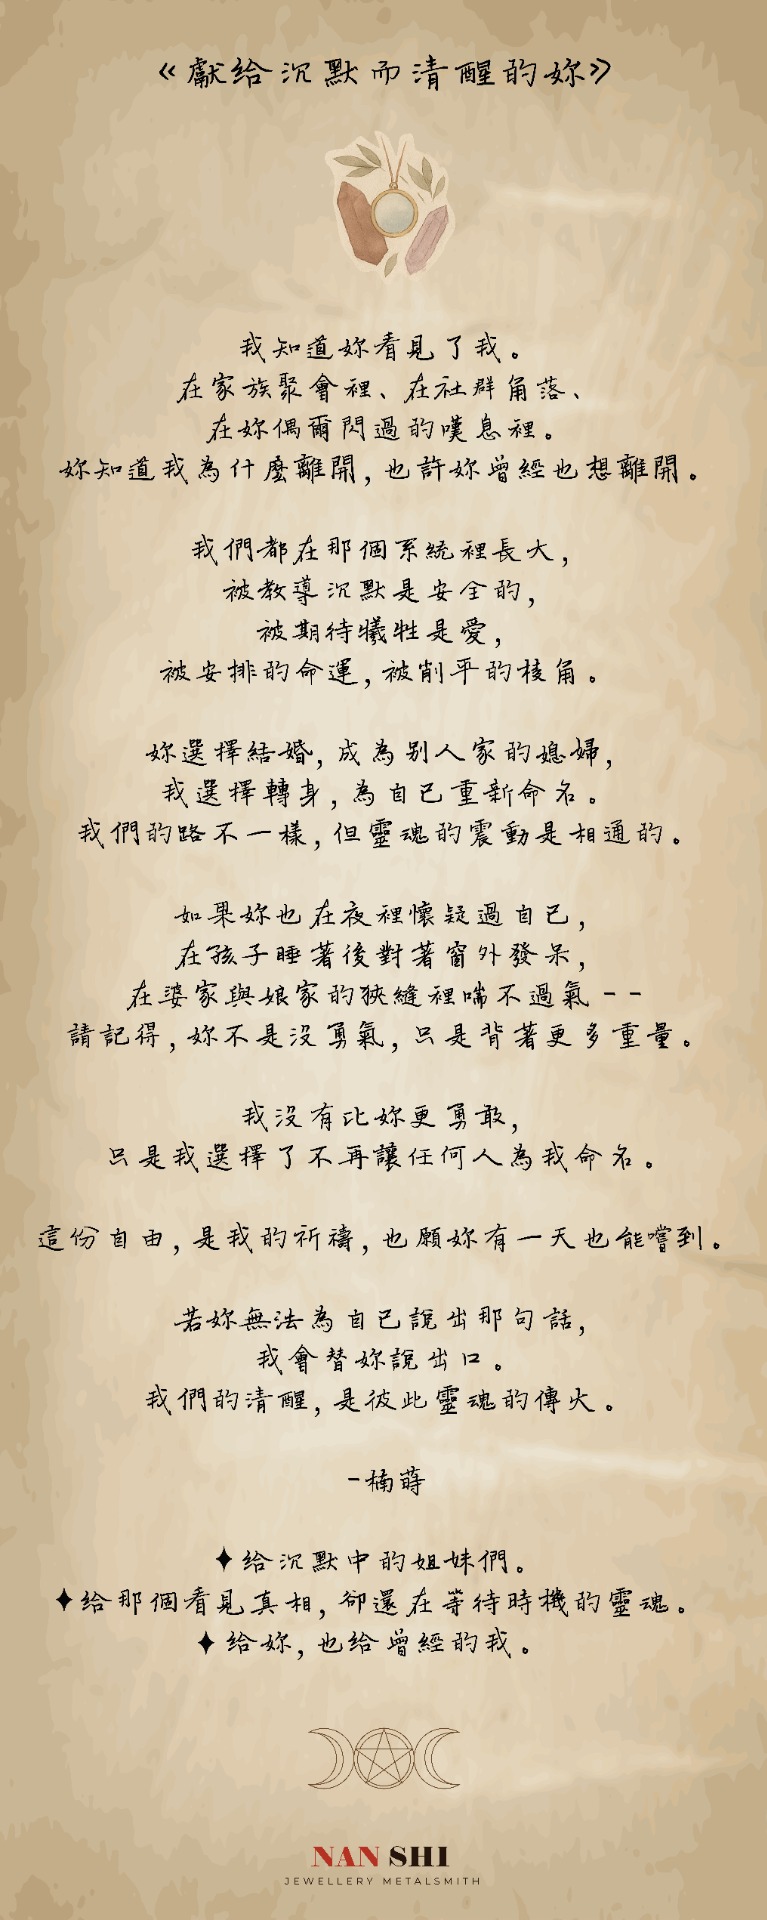 《獻給沉默而清醒的妳》
我知道妳看見了我。
在家族聚會裡、在社群角落、
在妳偶爾閃過的嘆息裡。
妳知道我為什麼離開,也許妳曾經也想離開。
我們都在那個系統裡長大,
被教導沉默是安全的,
被期待犧牲是愛,
被安排的命運,被削平的棱角。
妳選擇結婚,成為別人家的媳婦,
我選擇轉身,為自己重新命名。
我們的路不一樣,但靈魂的震動是相通的。
如果妳也在夜裡懷疑過自己,
在孩子睡著後對著窗外發呆,
在婆家與娘家的狹縫裡喘不過氣 --
請記得,妳不是沒勇氣,只是背著更多重量。
我沒有比妳更勇敢,
只是我選擇了不再讓任何人為我命名。
這份自由,是我的祈禱,也願妳有一天也能嚐到。
若妳無法為自己說出那句話,
我會替妳說出口。
我們的清醒,是彼此靈魂的傳火。
-楠蒔
✦給沉默中的姐妹們。
✦給那個看見真相,卻還在等待時機的靈魂。
✦給妳,也給曾經的我。
NAN SHI
JEWELLERY METALSMITH